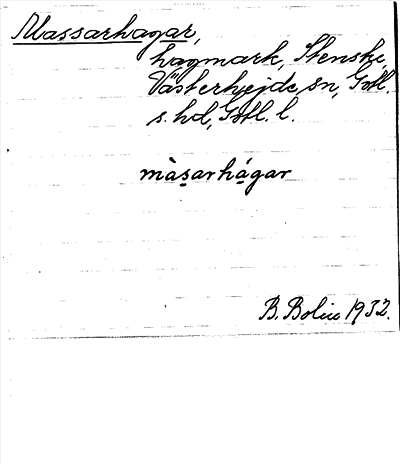 Massarhagar,
hagmark, Stenske,
Västerhejde sn, Gotl.
s. hd, Gotl. l.
màs̱arhá̱gar
B. Bolin 1932.